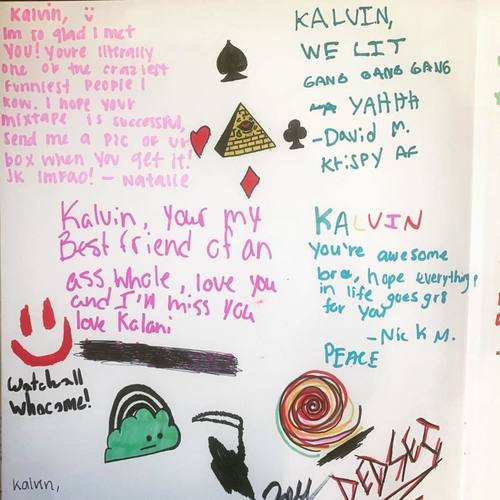 Kalvin,
Im so glad I met
You! You're literally
one of the craziest
funniest people I
know. I hope your
mixtape is successful,
send me a pic of ur
box when you get it!
JK lmfao! - Natalie
KALVIN,
WE LIT
GANG GANG GANG
YAHHH
- David M.
Krispy AF
Kalvin, your my
Best friend of an
ass whole, love you
and I'm miss you
love Kalani
KALVIN
You're awesome
bra, hope everything
in life goes gr8
for you
- Nick M.
PEACE
Watchall
Whocome!
Kalvin,